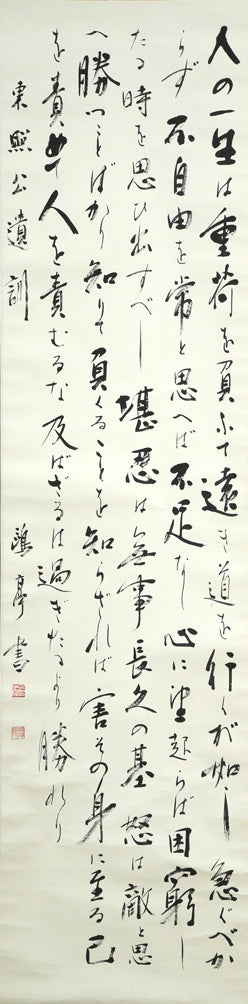 人の一生は重荷を負ふて遠き道を行くが如し 急ぐべか
らず 不自由を常と思へば不足なし 心に望起らば困窮し
たる時を思ひ出すべし 堪忍は無事長久の基 怒は敵と思
へ 勝つことばかり知りて負くることを知らざれば害その身に至る 己
を責めて人を責むるな 及ばざるは過ぎたるより勝れり
東照公遺訓 鷗亭書